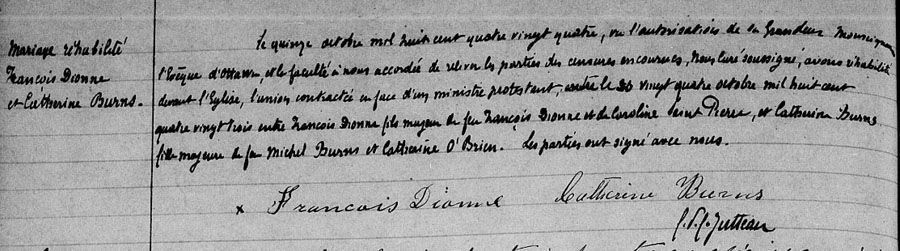 Mariage réhabilité
François Dionne
et Catherine Burns.
Le quinze octobre mil huit cent quatre vingt quatre, vu l'autorisation de sa Grandeur Monseigneur
l'Evêque d'Ottawa, et la faculté à nous accordée de relever les parties des censures encourues, Nous Curé soussigné, avons réhabilité
devant l'Eglise, l'union contractée en face d'un ministre protestant, le vingt quatre octobre mil huit cent
quatre vingt trois entre François Dionne fils majeur de feu François Dionne et de Caroline Saint Pierre, et Catherine Burns
fille majeure de feu Michel Burns et Catherine O'Brien. Les parties ont signé avec nous.
x Francois Dionne Catherine Burns